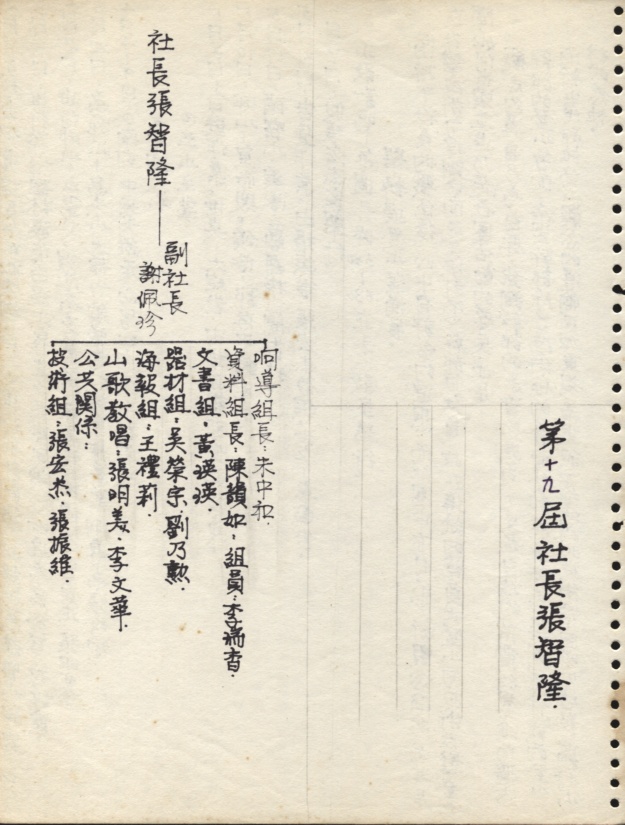 第十九屆社長張智隆.
社長張智隆
副社長
謝佩珍
响導組長：朱中和.
資料組長：陳韻如，組員：李瑞香.
文書組：黃瑛瑛
器材組：吳榮宗.劉乃勲.
海報組：王禮莉.
山歌教唱：張明美.李文華.
公共關係：
技術組：張宏杰.張振維.